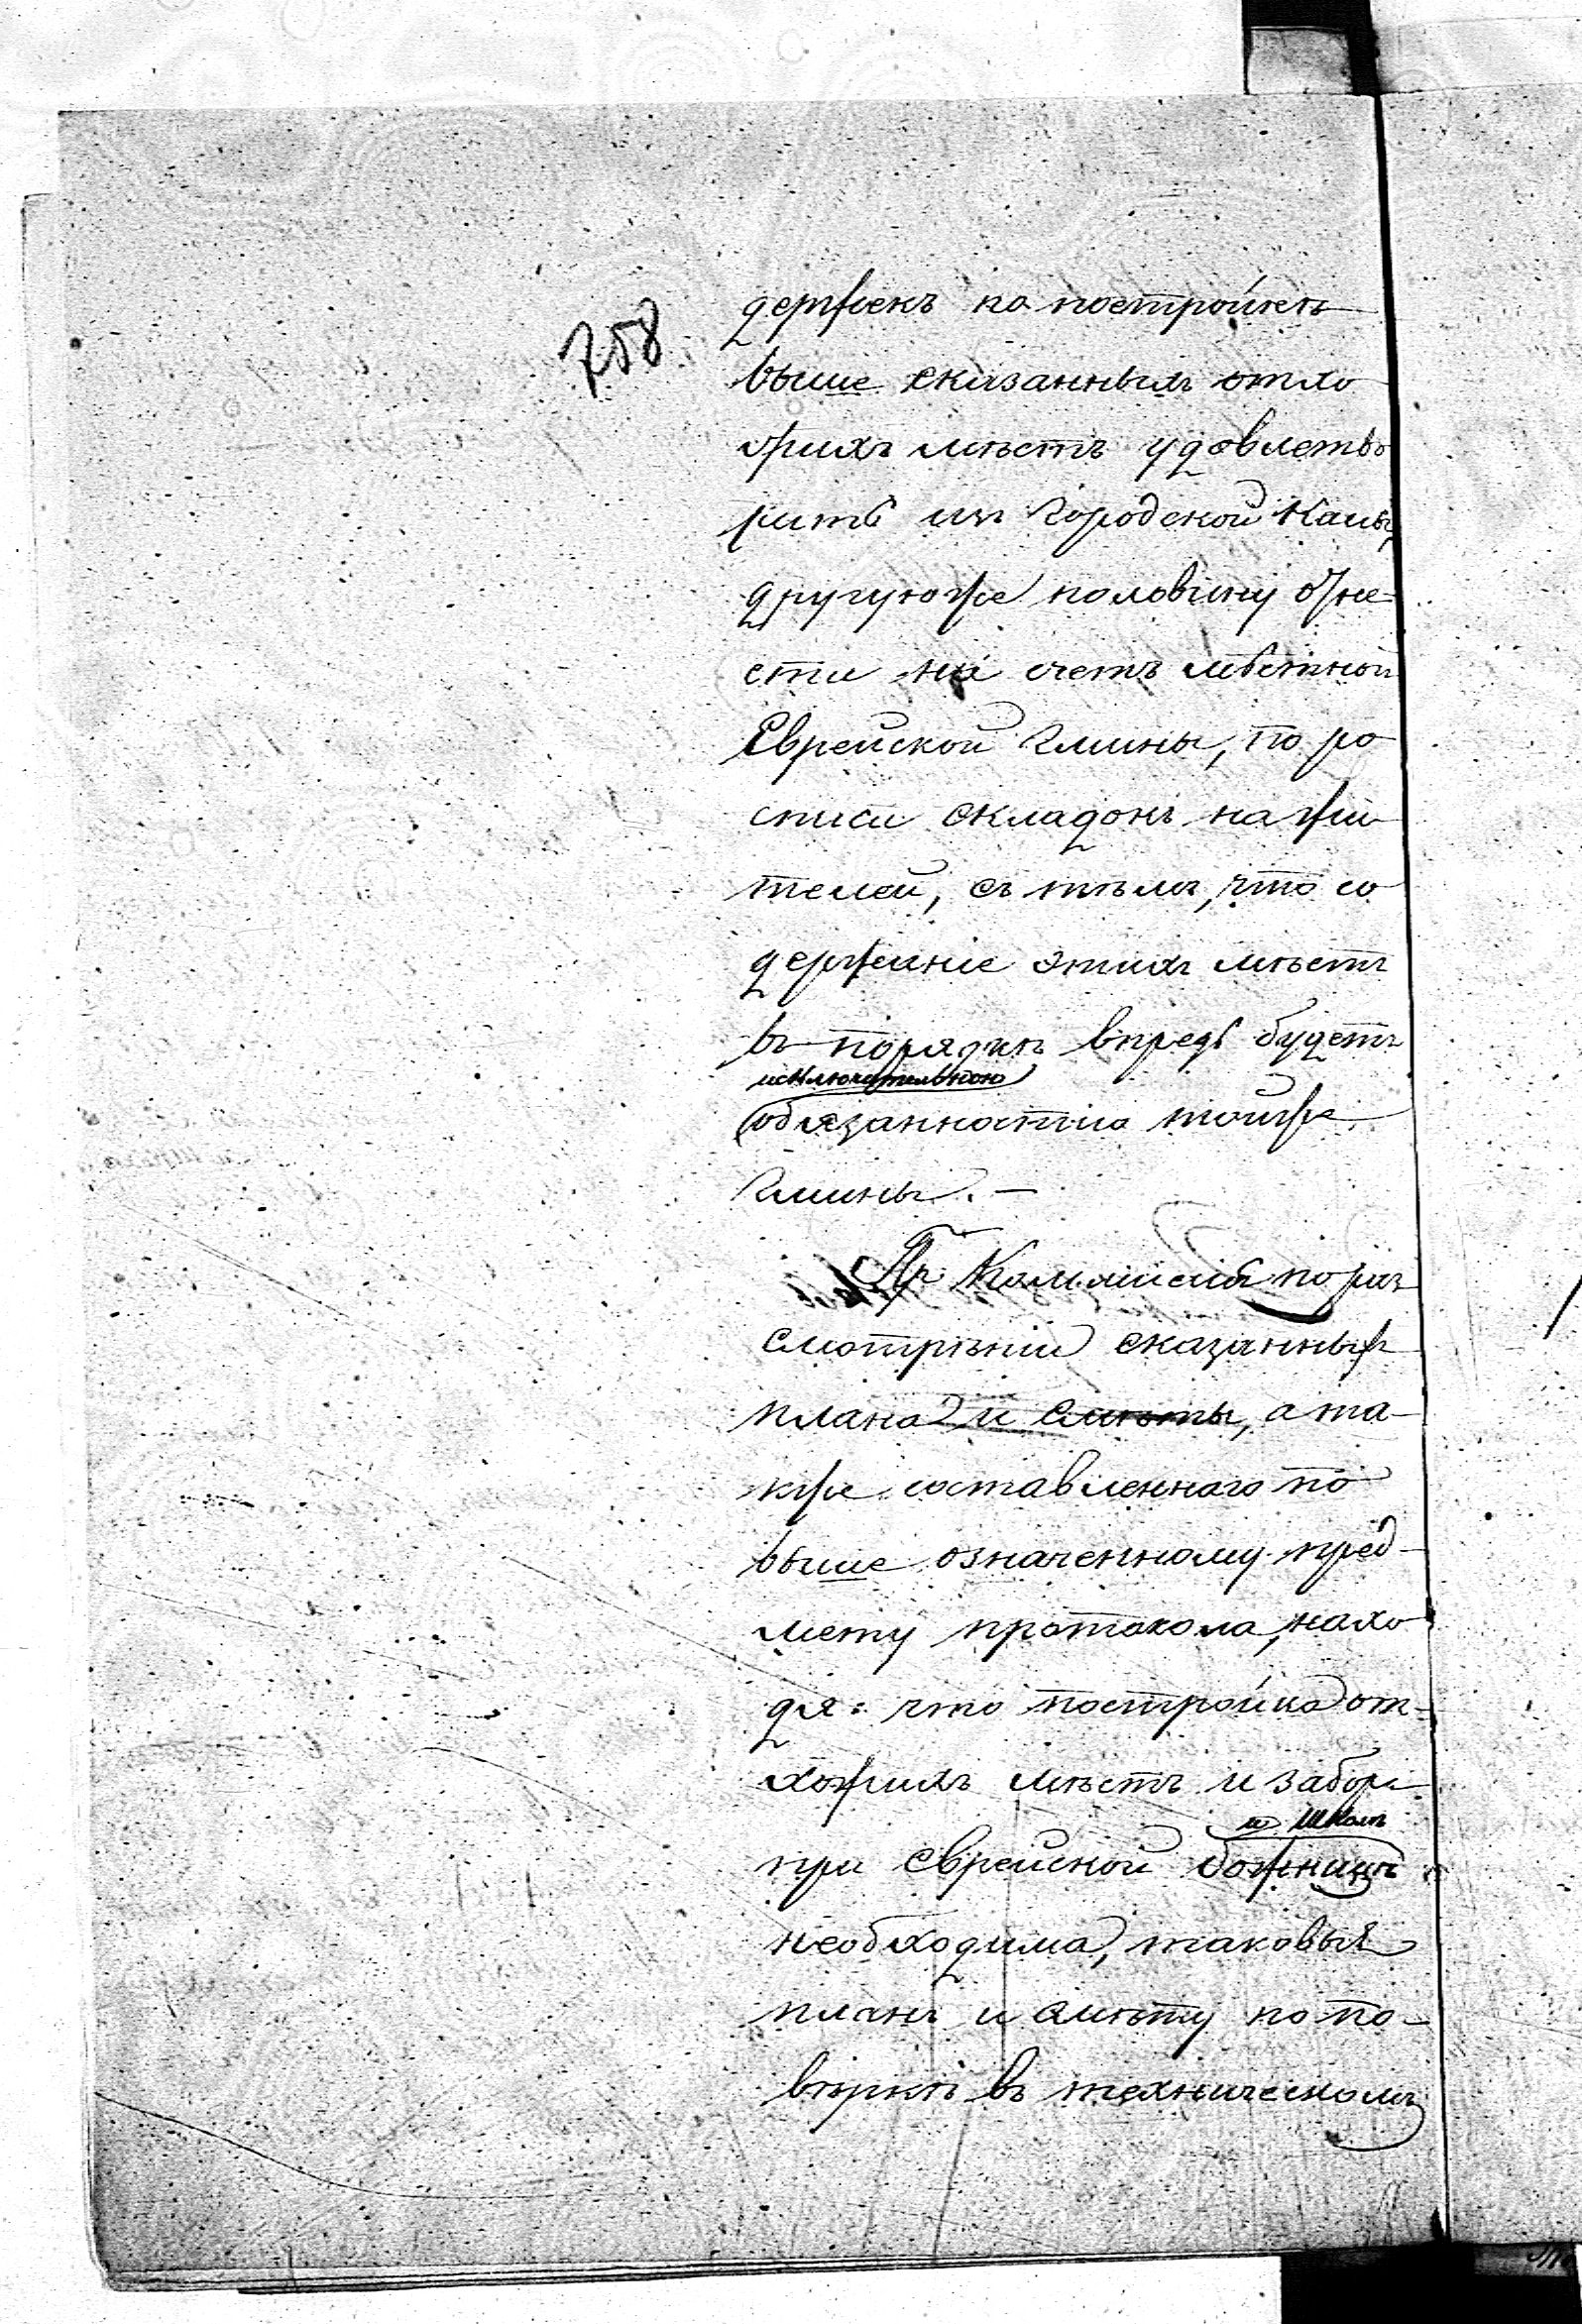 758
держекъ на постройкѣ
выше сказанныхъ отхо
жихъ мѣстъ удовлетво
рить изъ городской Касы,
другуюже половину отне-
сти на счетъ мѣстной
Еврейской гмины, по ро
списи складокъ на жи
телей, съ тѣмъ, что со
держаніе этихъ мѣстъ
въ порядкѣ впредь будетъ
исключительною
обязанностію тойже
гмины. —
по раз
смотрѣніи сказанныхъ
плана и смѣты, а та-
кже составленнаго по
выше означенному пред-
мету протокола, нахо
дя: что постройка от-
хожихъ мѣстъ и забора
и школѣ
при еврейской божницѣ
необходима, таковыя
планъ и смѣту по по-
вѣркѣ въ техническомъ